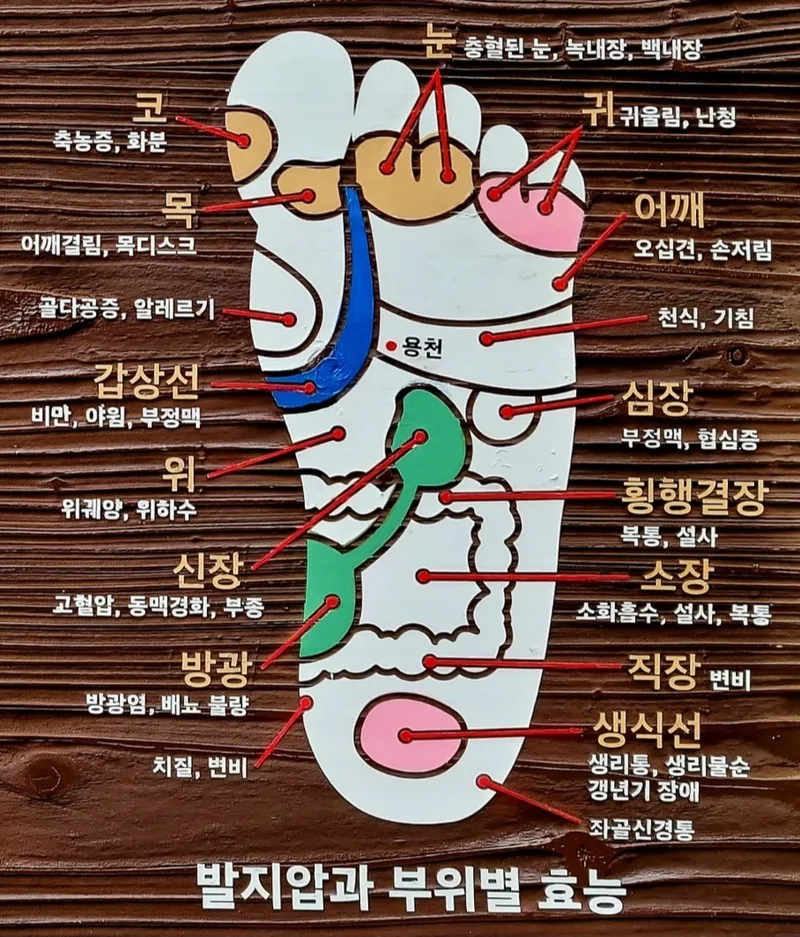 눈 충혈된 눈, 녹내장, 백내장
코
축농증, 화분
귀 귀울림, 난청
목
어깨결림, 목디스크
어깨
오십견, 손저림
골다공증, 알레르기
천식, 기침
용천
갑상선
비만, 야윔, 부정맥
심장
부정맥, 협심증
위
위궤양, 위하수
횡행결장
복통, 설사
신장
고혈압, 동맥경화, 부종
소장
소화흡수, 설사, 복통
방광
방광염, 배뇨 불량
직장 변비
치질, 변비
생식선
생리통, 생리불순
갱년기 장애
좌골신경통
발지압과 부위별 효능